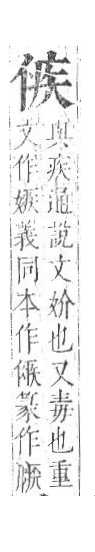 㑵
與疾通說文妎也又毒也重
文作嫉義同本作㑵篆作